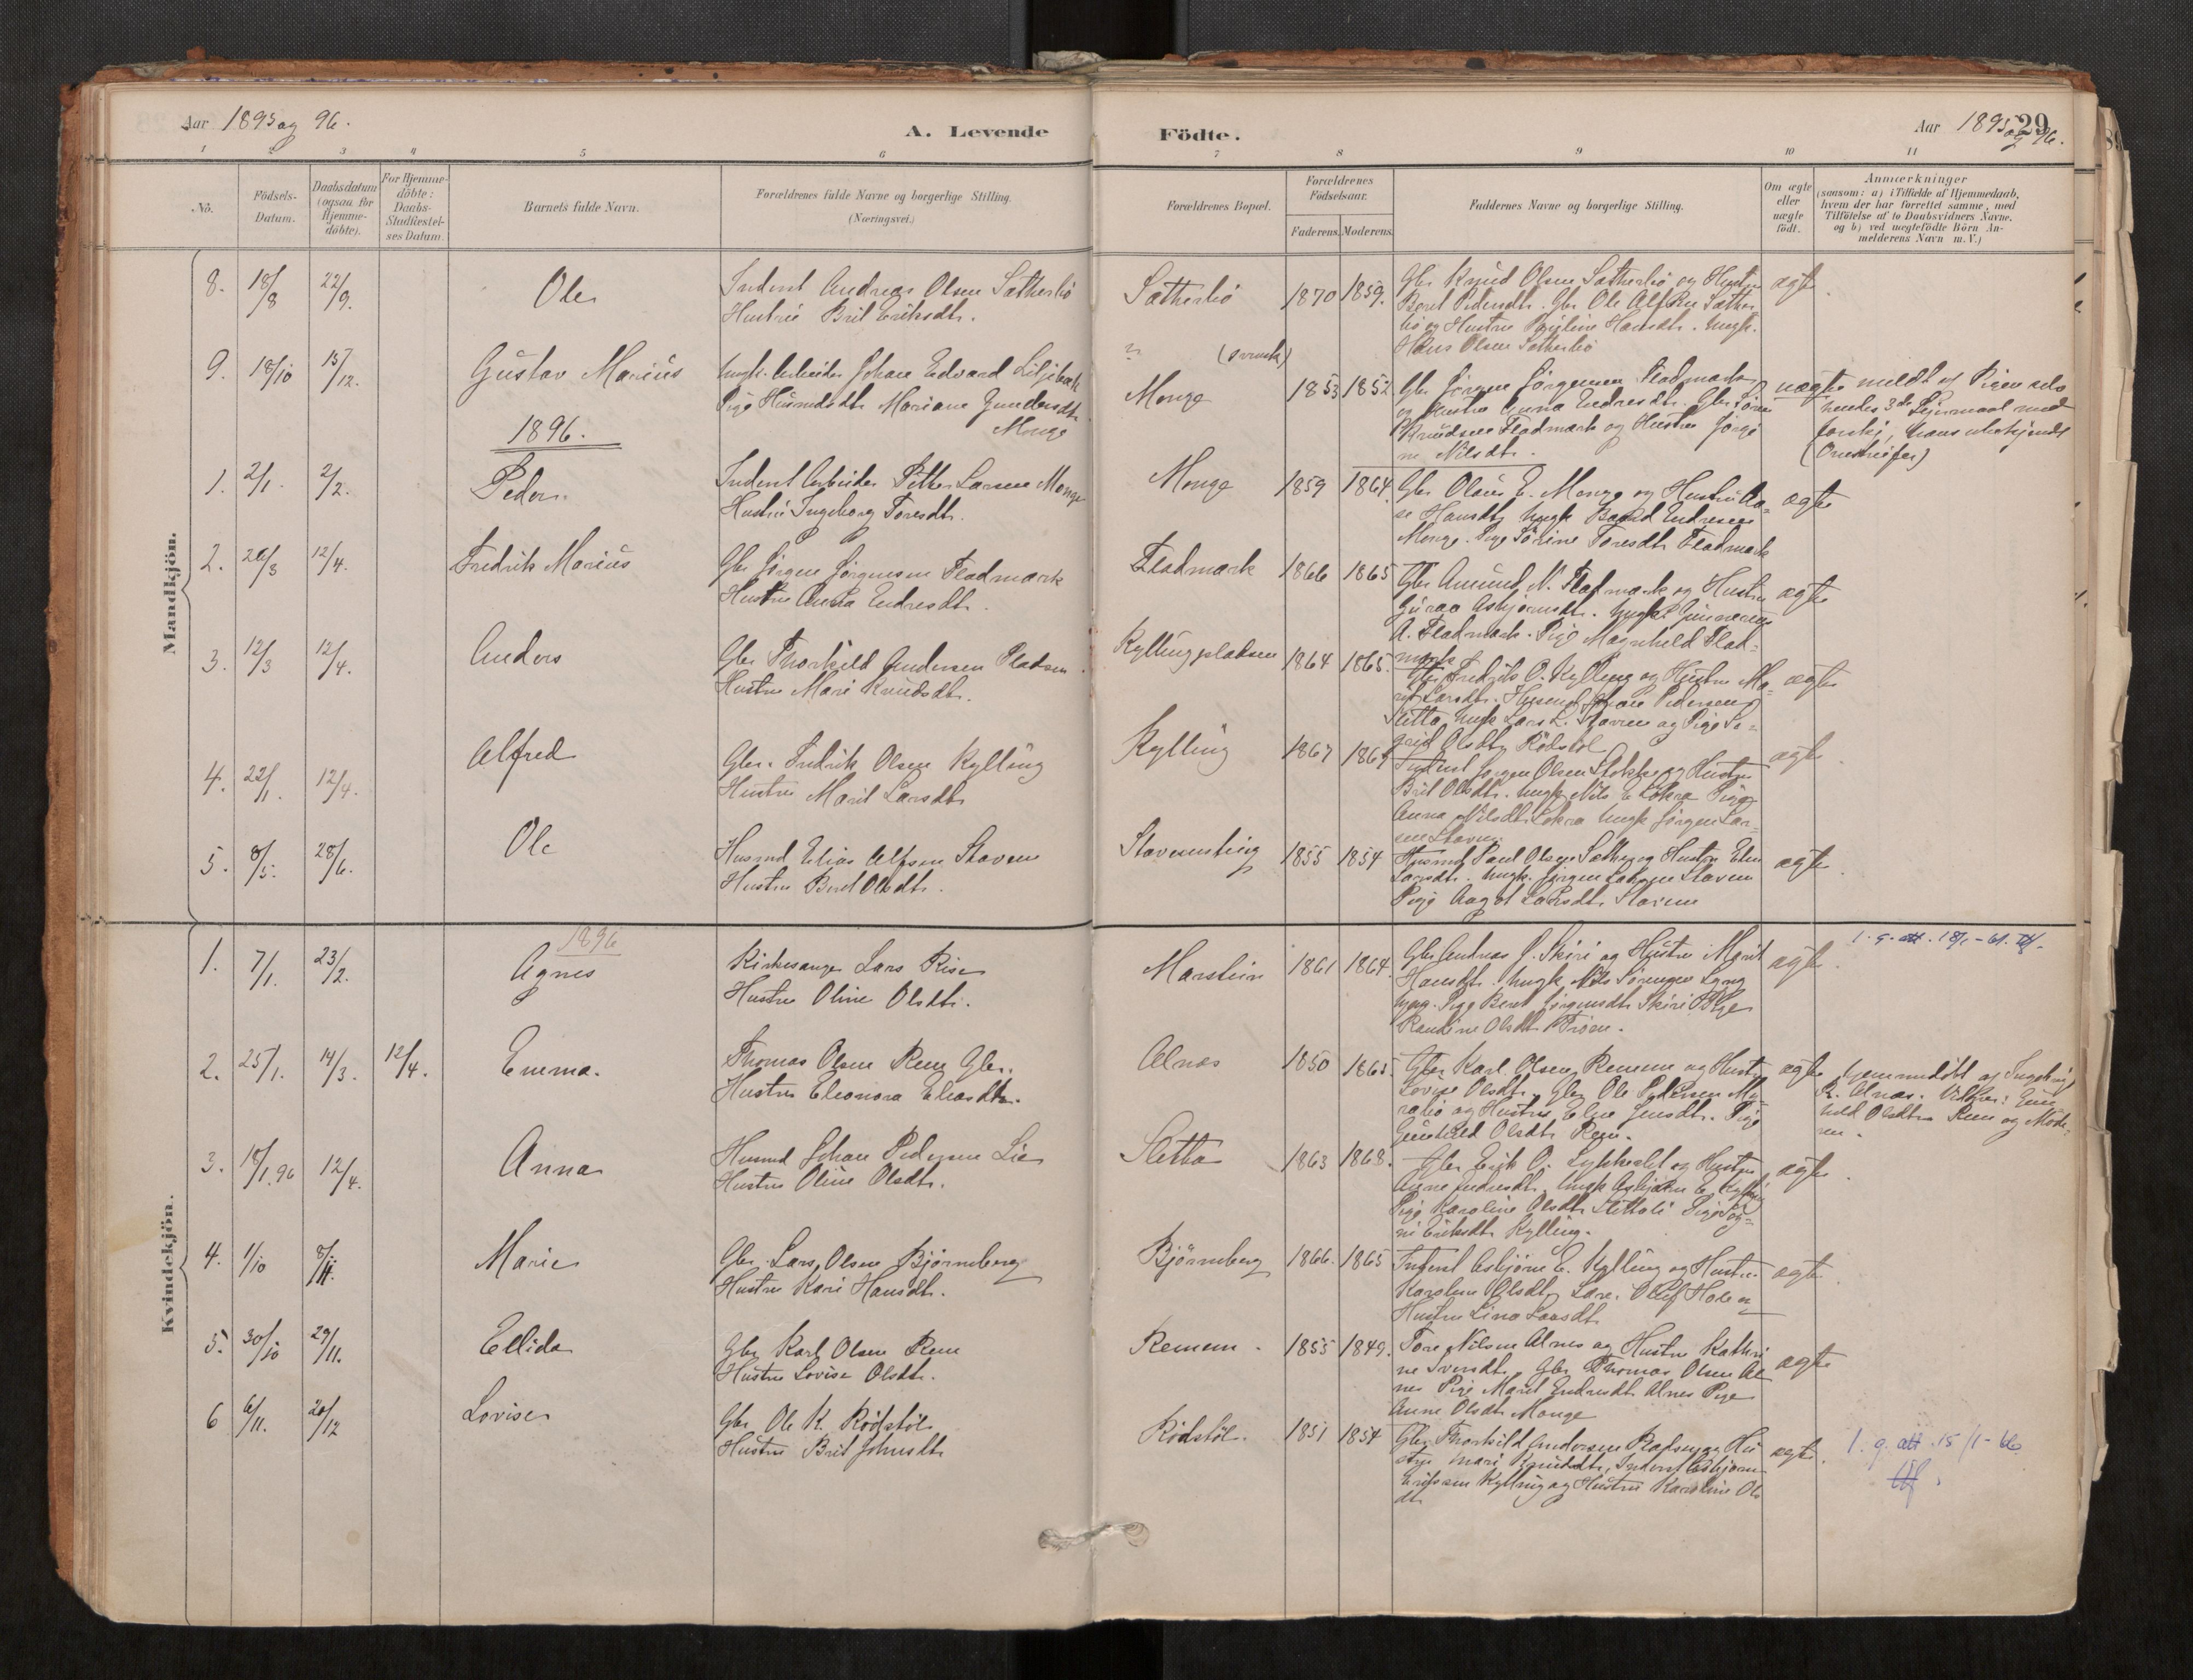 Aar 1895 og 96.
A. Levende Födte.
Aar 1895 og 96.
29
1 2 3 4 5 6 7 8 9 10 11
No.
Födsels-Datum.
Daabsdatum (ogsaa for Hjemme-döbte).
For Hjemme-döbte: Daabs-Stadfæstel-ses Datum.
Barnets fulde Navn.
Forældrenes fulde Navne og borgerlige Stilling.
(Næringsvei.)
Forældrenes Bopæl.
Forældrenes Födselsaar.
Faderens. Moderens.
Faddernes Navne og borgerlige Stilling.
Om ægte eller uægte födt.
Anmærkninger
(saasom: a) i Tilfælde af Hjemmedaab, hvem der har forrettet samme, med Tilföielse af to Daabsvidners Navne, og b) ved uægtefödte Börn An-melderens Navn m. V.)
Mandkjön.
8. 18/8 22/9. Ole
Inderst Andreas Olsen Sætherbö
Hustru Brit Eriksdtr.
Sætherbö 1870 1859.
Gbr Knud Olsen Sætherbö og Hustru
Beret Pedersdtr. Gbr Ole Alfsen Sæther-
bö og Hustru Hansdtr. Ungk.
Hans Olsen Sætherbö
ægte.
9. 18/10 15/12. Gustav Marius
Ungk. Arbeider Johan Edvard Liljebæk
Pige Husmdsdtr Mariane Gundersdtr.
Monge
(svensk)
Monge 1853 1852
Gbr Jørgen Jørgensen Fladmark
og Hustru Anna Endresdtr. Gbr Søren
Knudsen Fladmark og Hustru Jørgi-
ne Nilsdtr.
uægte
meldt af Pigen selv
hendes 3die Leiermaal med
forskj,
1896.
1. 2/1. 2/2. Peder.
Inderst Arbeider Petter Larsen Monge
Hustru Ingeborg Toresdtr.
Monge 1859 1864.
Gbr Olaus E. Monge og Hustru Aa-
se Hansdtr, Ungk Baard Endresen
Monge. Pige Sörine Toresdtr Fladmark
ægte
2. 20/3 12/4. Fredrik Marius
Gbr Jørgen Jørgensen Fladmark
Hustru Anna Endresdtr.
Fladmark 1866 1865
Gbr Amund N. Fladmark og Hustru
Guraa Asbjørnsdtr. Ungk Gunnerius
A. Fladmark. Pige Magnhild Flad-
mark
ægte
3. 12/3 12/4. Anders
Gbr Thorkild Andersen Pladsen.
Hustru Mari Knudsdtr.
Kyllingpladsen 1864 1865.
Gbr Fredrik O. Kylling og Hustru Ma-
rit Larsdtr. Husmd Johan Pedersen
Sletta, Ungk Lars L. Stavem og Pige Se-
grid Olsdtr Rødstöl
ægte
4. 22/1. 12/4. Alfred
Gbr. Fredrik Olsen Kylling
Hustru Marit Larsdtr
Kylling 1867 1869
Inderst Jørgen Olsen Stokke og Hustru
Brit Olsdtr. Ungk Nils E Løkra Pige
Anna Nilsdtr Løkra Ungk Jørgen Lar-
sen Stavem
ægte.
5. 8/5. 28/6. Ole
Husmd Elias Alfsen Stavem
Hustru Beret Olsdtr.
Stavemsteig 1855 1854
Husmd Paul Olsen Sæther og Hustru Elen
Larsdtr. Ungk. Jørgen Larsen Stavem
Pige Aagot Larsdtr Stavem
ægte.
Kvindekjön.
1896
1. 7/1. 23/2. Agnes
Kirkesanger Lars Rise
Hustru Oline Olsdtr.
Marstein 1861 1864.
Gbr Andreas J. Skiri og Hustru Marit
Hansdtr. Ungk Nils Sørensen Lyng
Pige Beret Jørgensdtr Skiri Pige
Randine Olsdtr
ægte.
1. g. att. 18/1-61.
2. 25/1. 14/3. 12/4. Emma.
Thomas Olsen Rem Gbr.
Hustru Eleonora Eliasdtr.
Alnæs 1850 1865.
Gbr Karl Olsen Remem og Hustru
Lovise Olsdtr. Gbr Ole Pedersen My-
rabö og Hustru Elen Jensdtr. Pige
Gunhild Olsdtr Rem.
ægte
hjemmedöbt af Ingebrigt
R. Alnæs. Vidner: Gun-
hild Olsdtr Rem og Mode-
ren.
3. 18/1.96 12/4. Anna
Husmd Johan Pedersen Lie
Hustru Oline Olsdtr.
Sletta 1863 1868.
Gbr Erik O. Lykkeslet og Hustru
Anne Endresdtr. Ungk Asbjørn E. Kylling
Pige Karoline Olsdtr Sletteli Pige Sig-
ni Eriksdtr Kylling.
ægte.
4. 1/10 8/11. Marie
Gbr. Lars Olsen Bjørneberg
Hustru Kari Hansdtr.
Bjørneberg 1866. 1865
Inderst Asbjørn E. Kylling og Hustru
Karoline Olsdtr, Lærer Oluf Hole og
Hustru Lina Larsdtr
ægte.
5. 30/10 29/11. Ellida
Gbr Karl Olsen Rem
Hustru Lovise Olsdtr.
Remem. 1855 1849.
Tore Nilsen Alnes og Hustru Kathri-
ne Iversdtr. Gbr Thomas Olsen Al-
nes Pige Marit Endresdtr Alnes Pige
Anne Olsdtr Monge
ægte
6 6/11. 20/12 Lovise
Gbr Ole K. Rödstöl
Hustru Brit Johnsdtr
Rödstöl. 1851 1854
Gbr Thorkild Andersen Pladsen og Hu-
stru Mari Knudsdtr, Inderst Asbjørn
Eriksen Kylling og Hustru Karoline Ols
dtr
ægte.
1. g. att. 15/1-66